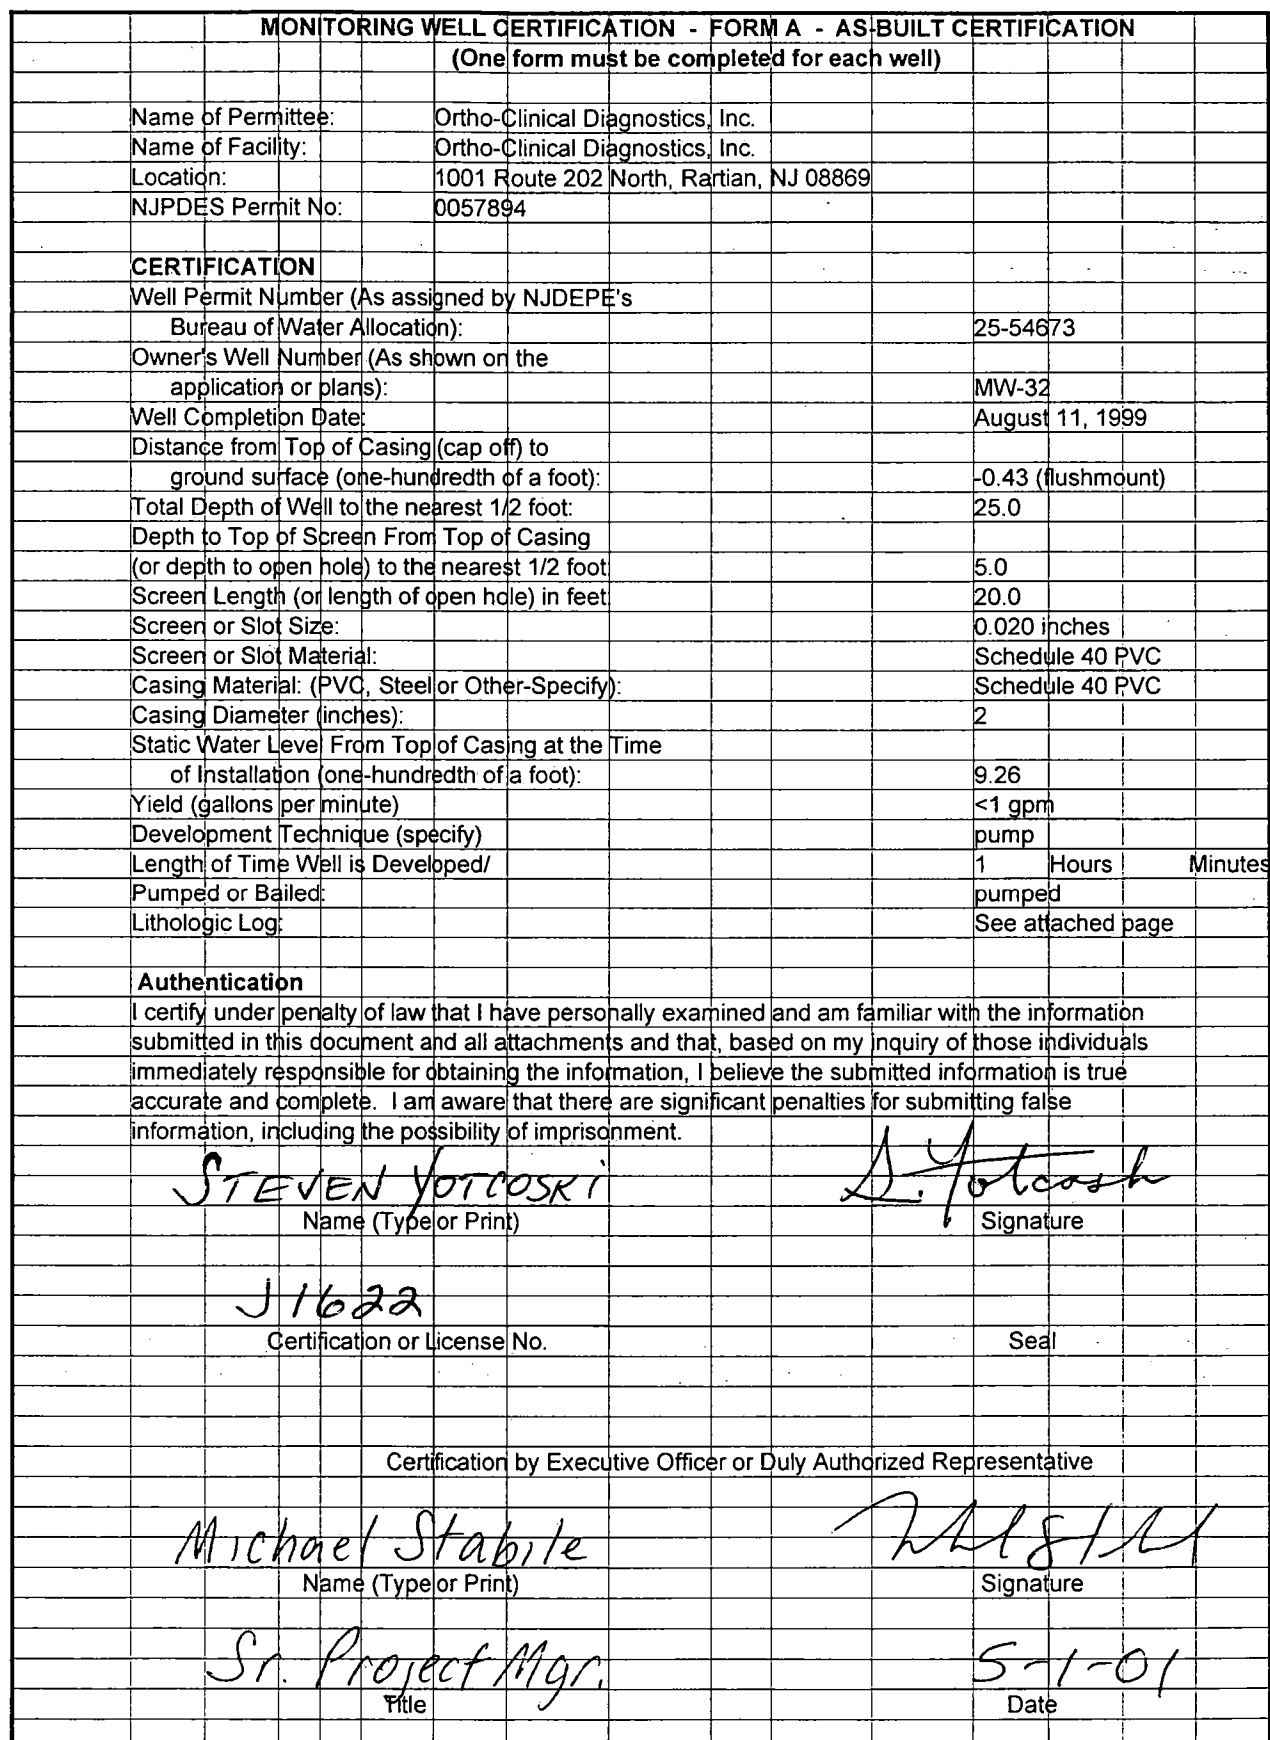 MONITORING WELL CERTIFICATION - FORM A - AS-BUILT CERTIFICATION
(One form must be completed for each well)
Name of Permittee: Ortho-Clinical Diagnostics, Inc.
Name of Facility: Ortho-Clinical Diagnostics, Inc.
Location: 1001 Route 202 North, Rartian, NJ 08869
NJPDES Permit No: 0057894
CERTIFICATION
Well Permit Number (As assigned by NJDEPE's
Bureau of Water Allocation): 25-54673
Owner's Well Number (As shown on the
application or plans): MW-32
Well Completion Date: August 11, 1999
Distance from Top of Casing (cap off) to
ground surface (one-hundredth of a foot): -0.43 (flushmount)
Total Depth of Well to the nearest 1/2 foot: 25.0
Depth to Top of Screen From Top of Casing
(or depth to open hole) to the nearest 1/2 foot 5.0
Screen Length (or length of open hole) in feet 20.0
Screen or Slot Size: 0.020 inches
Screen or Slot Material: Schedule 40 PVC
Casing Material: (PVC, Steel or Other-Specify): Schedule 40 PVC
Casing Diameter (inches): 2
Static Water Level From Top of Casing at the Time
of Installation (one-hundredth of a foot): 9.26
Yield (gallons per minute) <1 gpm
Development Technique (specify) pump
Length of Time Well is Developed/ 1 Hours Minutes
Pumped or Bailed: pumped
Lithologic Log: See attached page
Authentication
I certify under penalty of law that I have personally examined and am familiar with the information
submitted in this document and all attachments and that, based on my inquiry of those individuals
immediately responsible for obtaining the information, I believe the submitted information is true
accurate and complete. I am aware that there are significant penalties for submitting false
information, including the possibility of imprisonment.
STEVEN YOTCOSKI S. Yotcosh
Name (Type or Print) Signature
J1622
Certification or License No. Seal
Certification by Executive Officer or Duly Authorized Representative
Michael Stabile
Name (Type or Print) Signature
Sr. Project Mgr. 5-1-01
Title Date